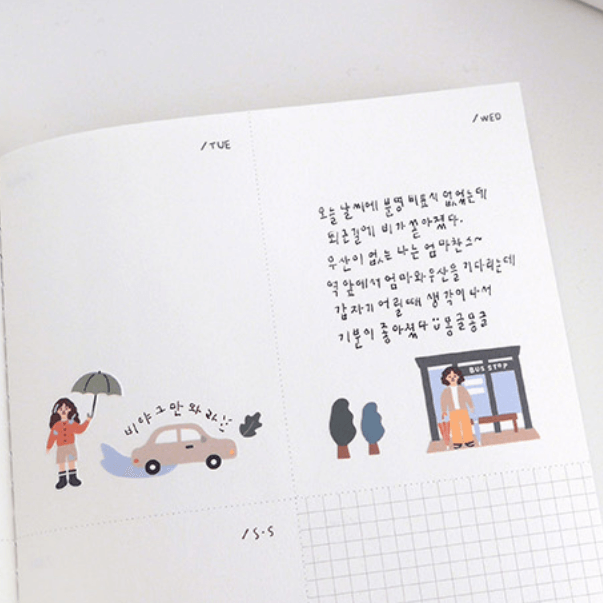 /TUE
/WED
오늘 날씨에 분명 비표시 없었는데
퇴근길에 비가 쏟아졌다.
우산이 없는 나는 엄마찬스~
역 앞에서 엄마와 우산을 기다리는데
갑자기 어릴때 생각이 나서
기분이 좋아졌다 몽글몽글
비야 그만 와라
BUS STOP
/S.S